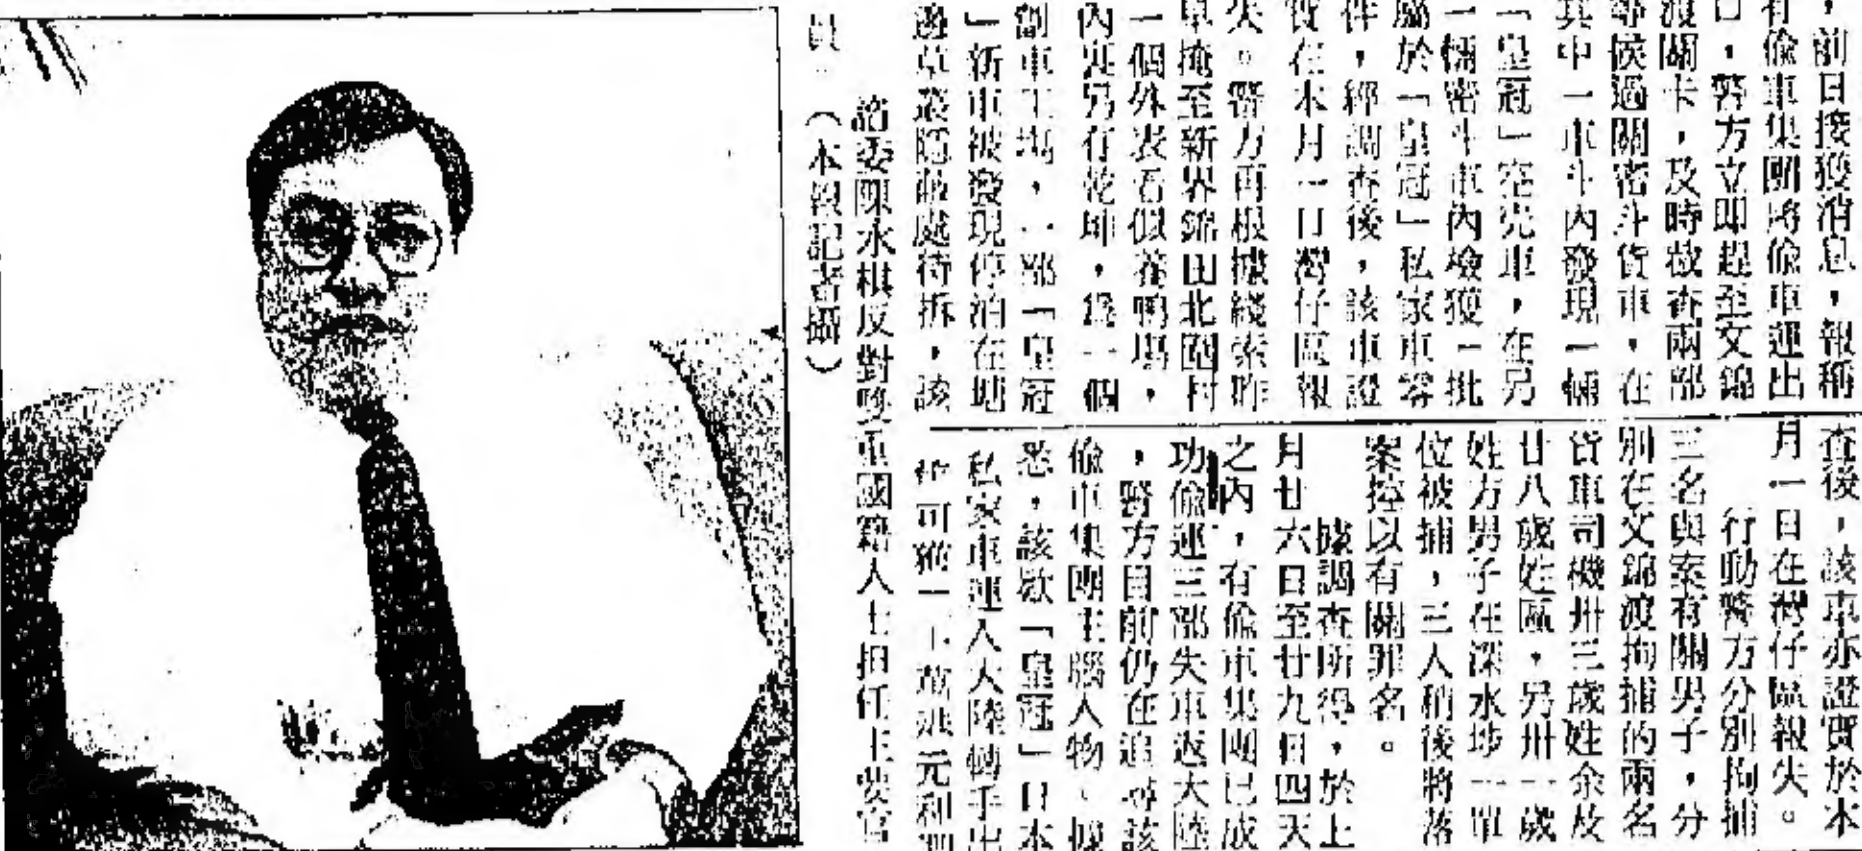 ，前日接獲消息，報稱
有偷車集團將偷車運出
口，警方立即趕至文錦
渡關卡，及時截查兩部
尋候過關密斗貨車，在
其中一車斗內發現一輛
「皇冠」空壳車，在另
一輛密斗車內檢獲一批
屬於「皇冠」私家車零
件，經調查後，該車證
實在本月一日灣仔區報
失。警方再根據綫索昨
車掩至新界錦田北圍村
一個外表看似養鴨場，
內裏另有乾坤，爲一個
劏車工場，一部「皇冠
」新車被發現停泊在塘
邊草叢隱蔽處待拆，該
查後，該車亦證實於本
月一日在灣仔區報失。
行動警方分別拘捕
三名與案有關男子，分
別在文錦渡拘捕的兩名
貨車司機卅三歲姓余及
廿八歲姓區，另卅一歲
姓方男子在深水埗一單
位被捕，三人稍後將落
案控以有關罪名。
據調查所得，於上
月廿六日至廿九日四天
之內，有偷車集團已成
功偷運三部失車返大陸
，警方目前仍在追尋該
偷車集團主腦人物。據
悉，該款「皇冠」日本
私家車運入大陸轉手出
可獲一十萬港元利潤
諮委陳永棋反對雙重國籍人士担任主要官
員。（本報記者攝）